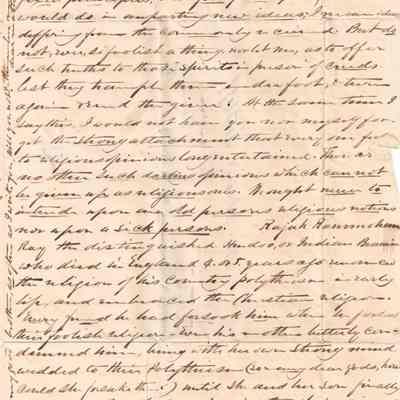 would do in imparting new ideas; I mean ideas
differing from the commonly received. But do
not, even so foolish a thing, not let my as to offer
such truths to those spirits in prison of creeds
lest they trample them under foot, & turn
again & rend the giver. At the same time I
say this, I would not have you nor myself for-
get the strong attachment that every one feels
to religious opinions long entertained. There is
no other such darling opinions which cannot
be given up as religious ones. We ought never to
intrude upon an old persons religious notions
nor upon a sick persons. Rajah Rammohun
Roy the distinguished Hindoo, or Indian Bramin
who died in England 4 or 5 years ago renounced
the religion of his country polytheism in early
life, and embraced the Christian religion.
Every friend he had forsook him when he forsook
their foolish religion. Even his mother bitterly con-
demned him, being with her own strong mind
wedded to their Polytheism (for my dear gods, how
could she forsake th ?) until she and her son finally